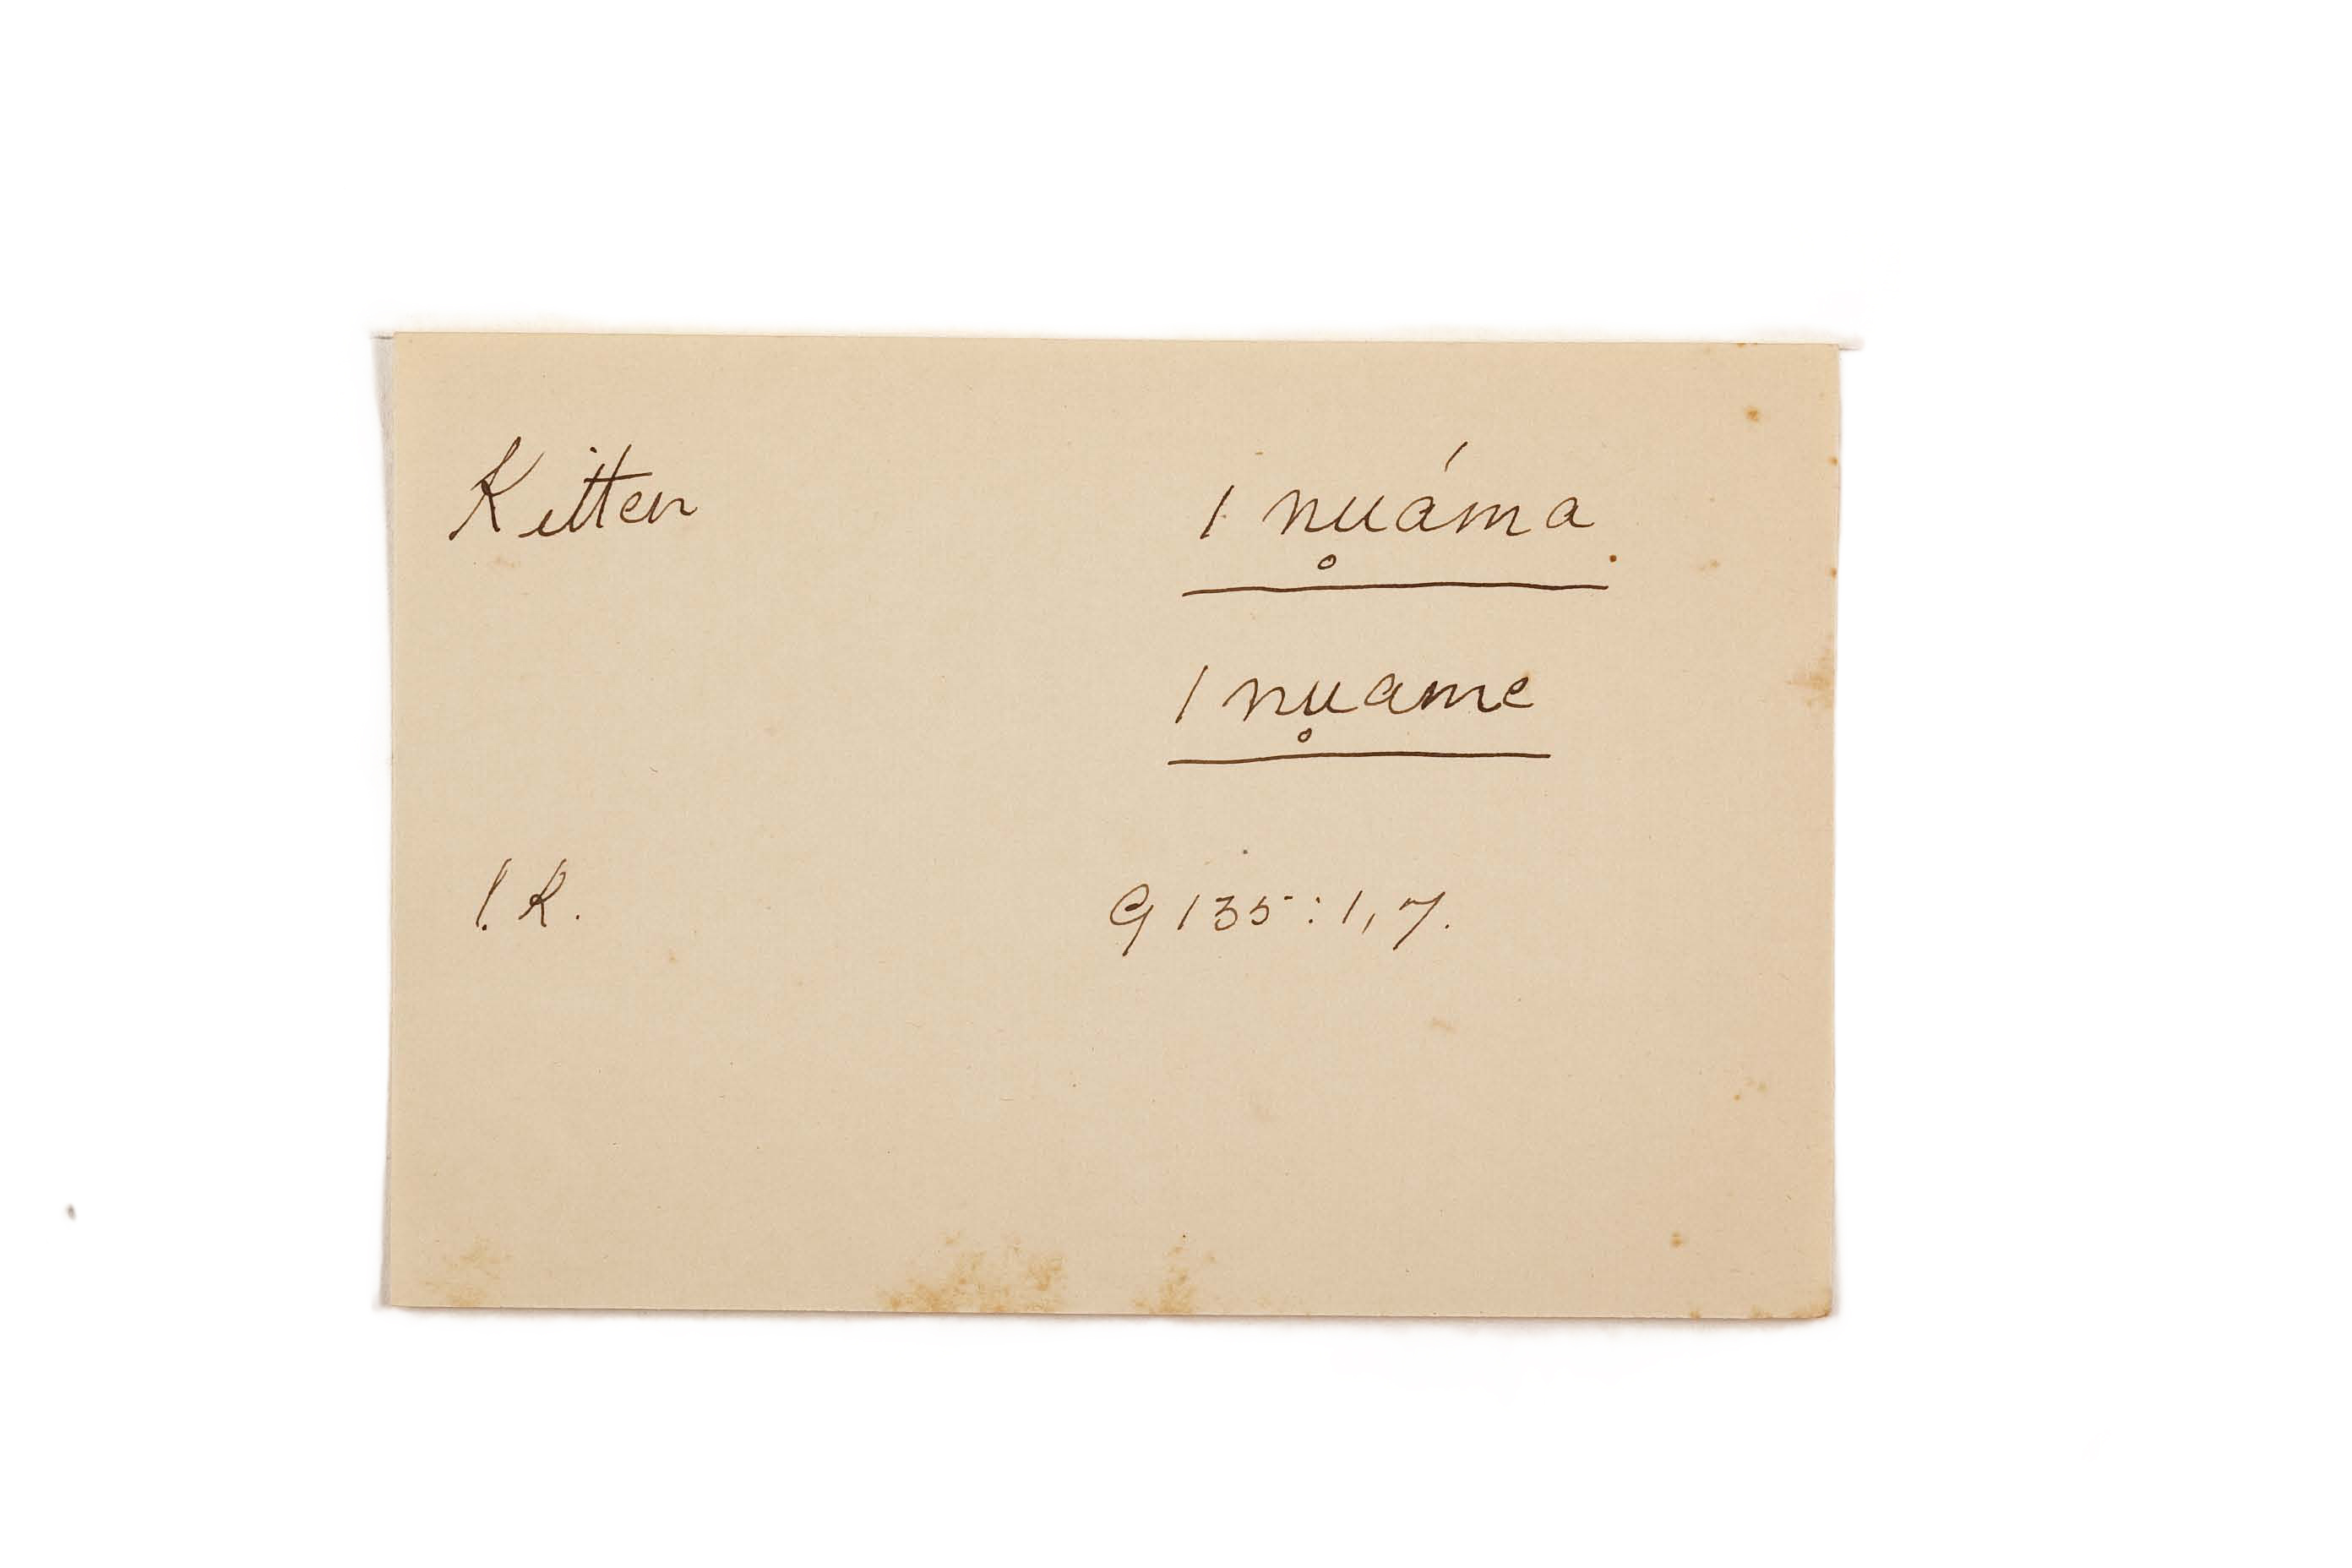 Kitten
/ nu̥áma
/ nu̥ame
!R.
G 135:1,7.